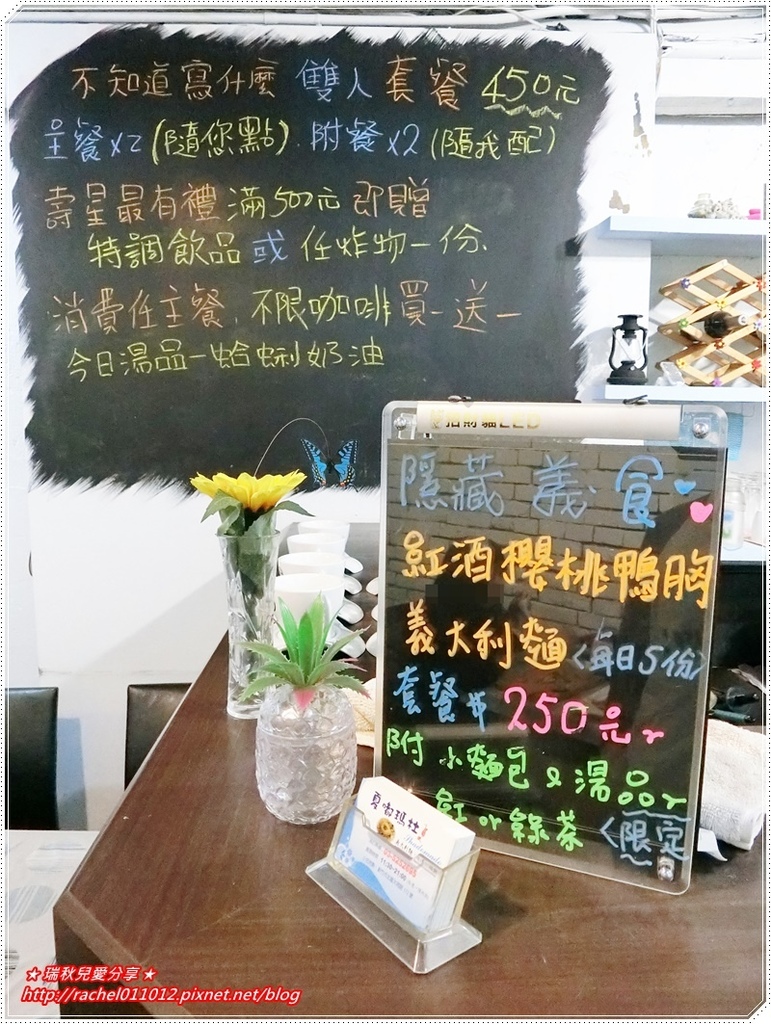 不知道寫什麼 雙人套餐 450元
主餐x2(隨您點). 附餐x2(隨我配)
壽星最有禮滿500元即贈
特調飲品或任炸物一份.
消費任主餐.不限咖啡買一送一
今日湯品一蛤蜊奶油
招財貓LED
隱藏義食
紅酒櫻桃鴨胸
義大利麵<每日5份>
套餐$250元
附小麵包&湯品
紅or綠茶<限定
★瑞秋兒愛分享★
http://rachel011012.pixnet.net/blog